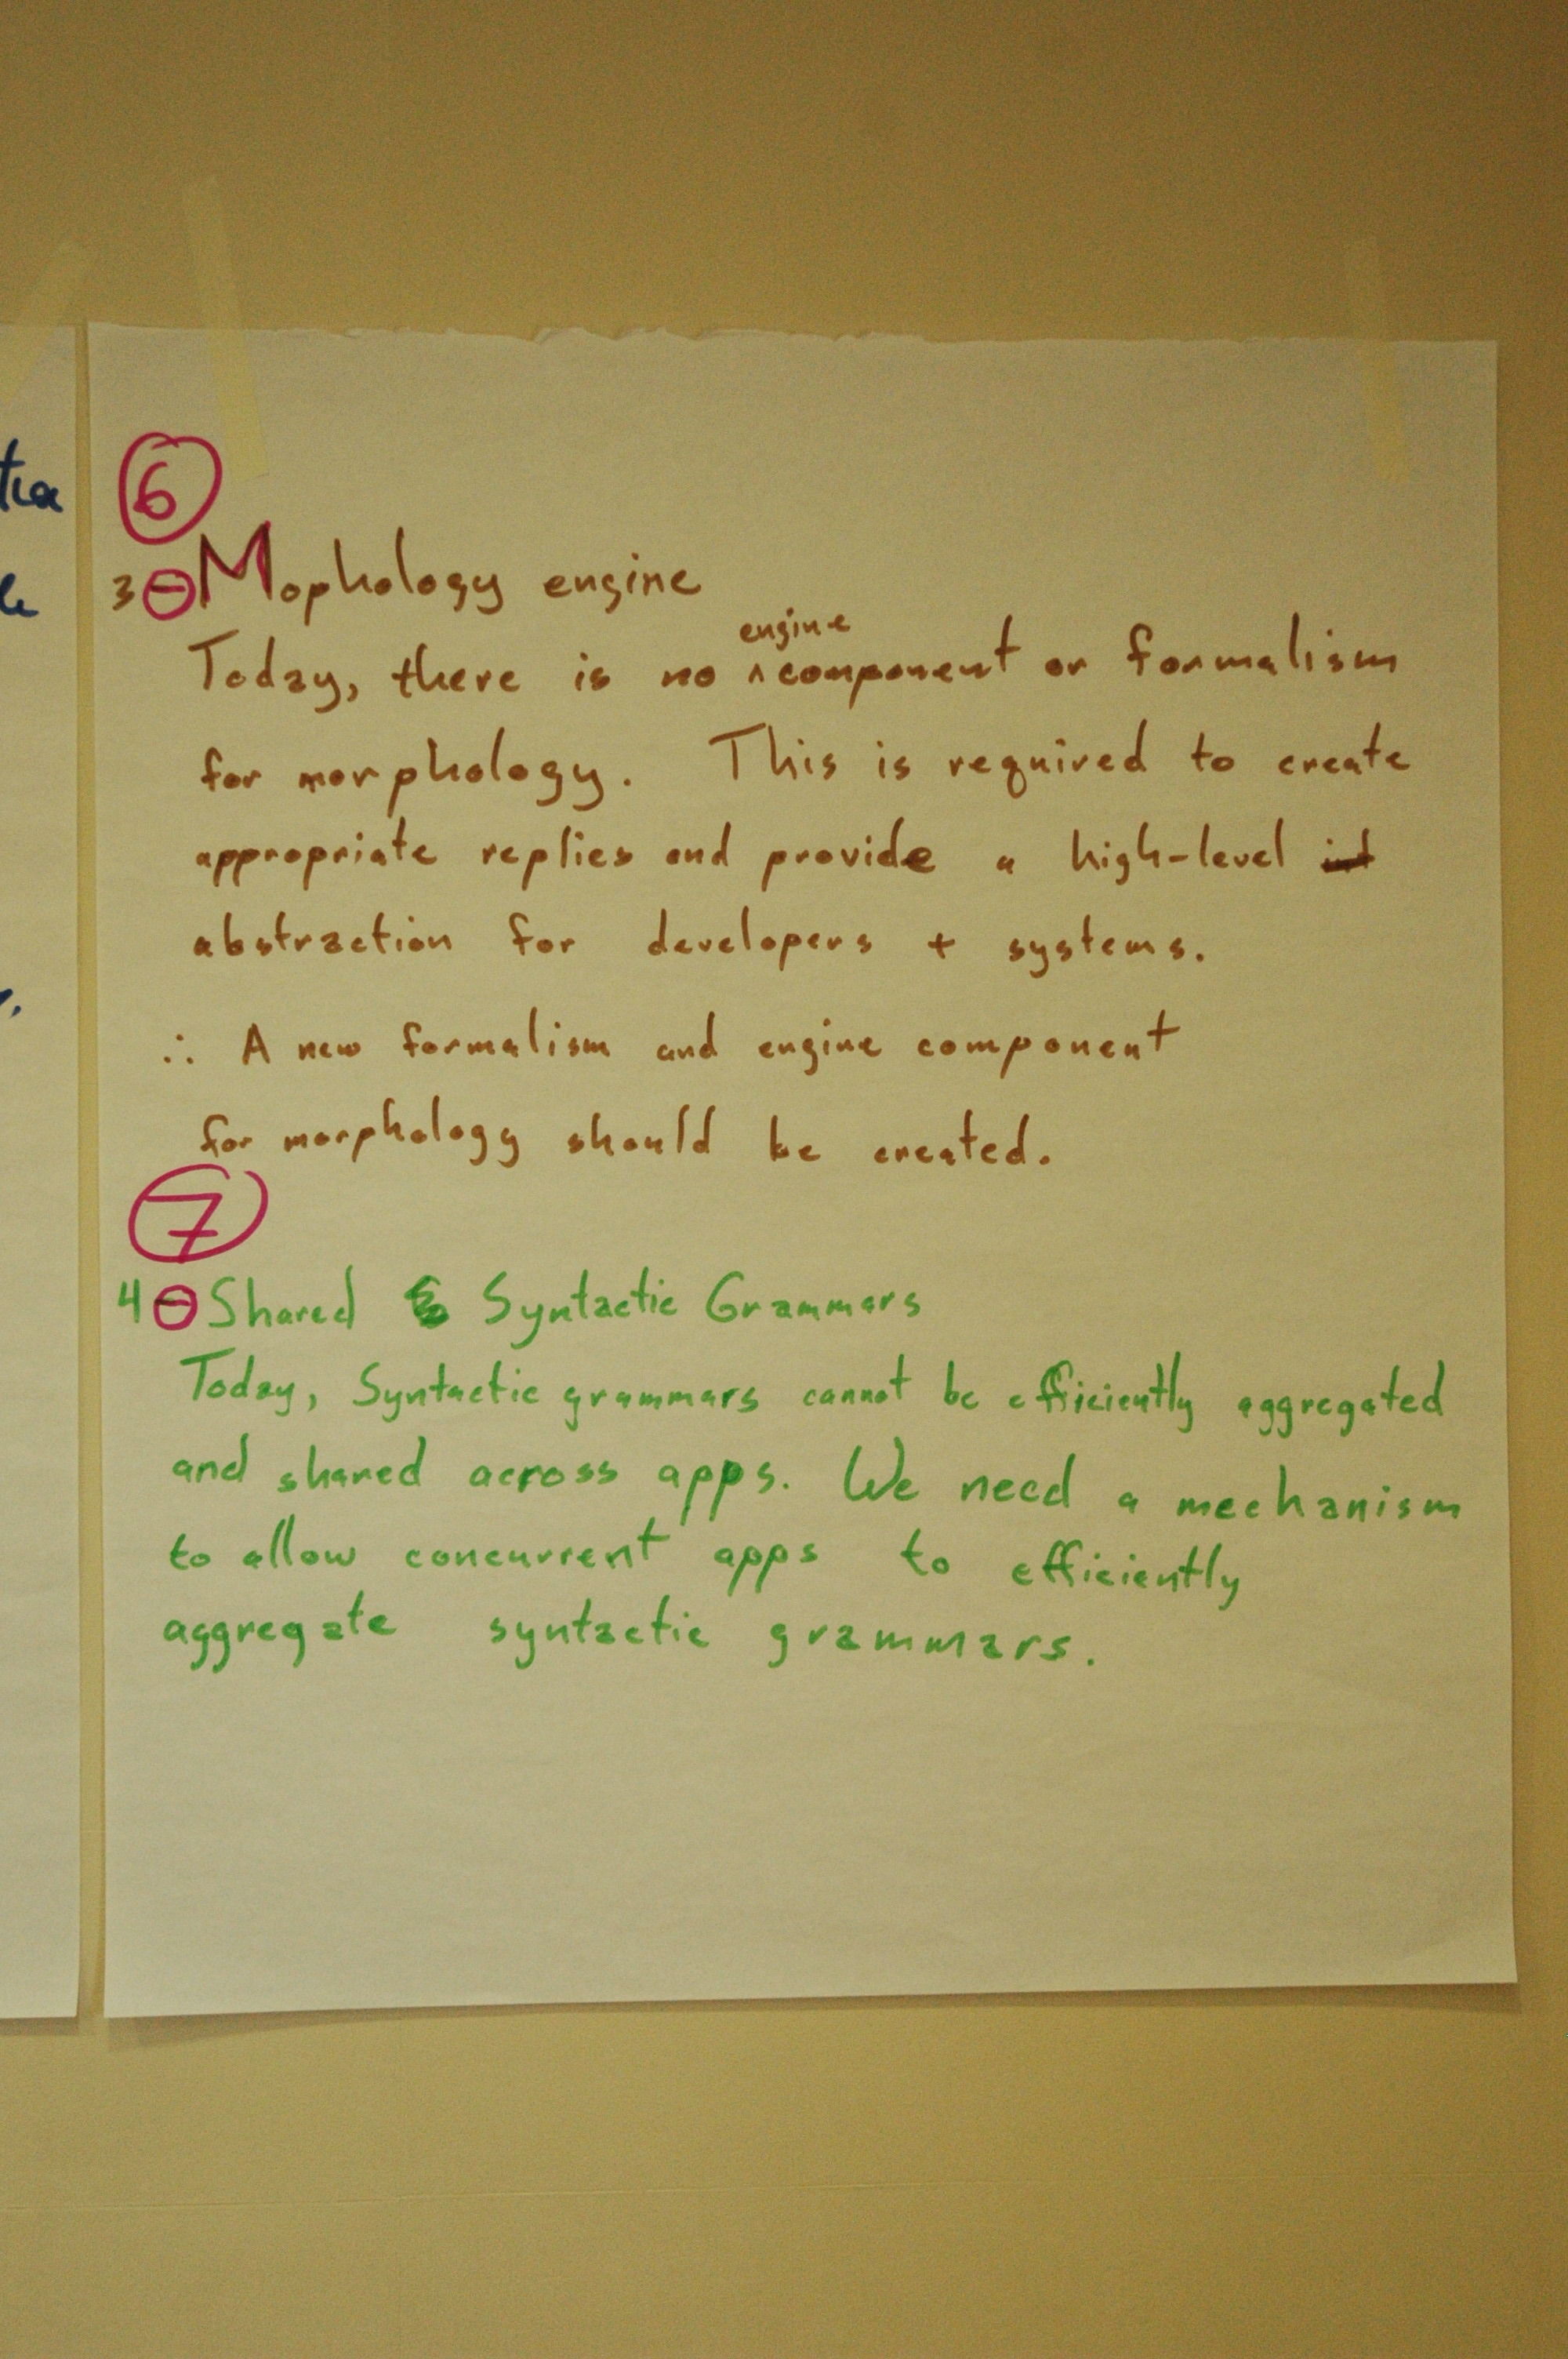 6
3 Mophology engine
engine
Today, there is no ^ component or formalism
for morphology. This is required to create
appropriate replies and provide a high-level
abstraction for developers + systems.
∴ A new formalism and engine component
for morphology should be created.
7
4 Shared Syntactic Grammars
Today, Syntactic grammars cannot be efficiently aggregated
and shared across apps. We need a mechanism
to allow concurrent apps to efficiently
aggregate syntactic grammars.